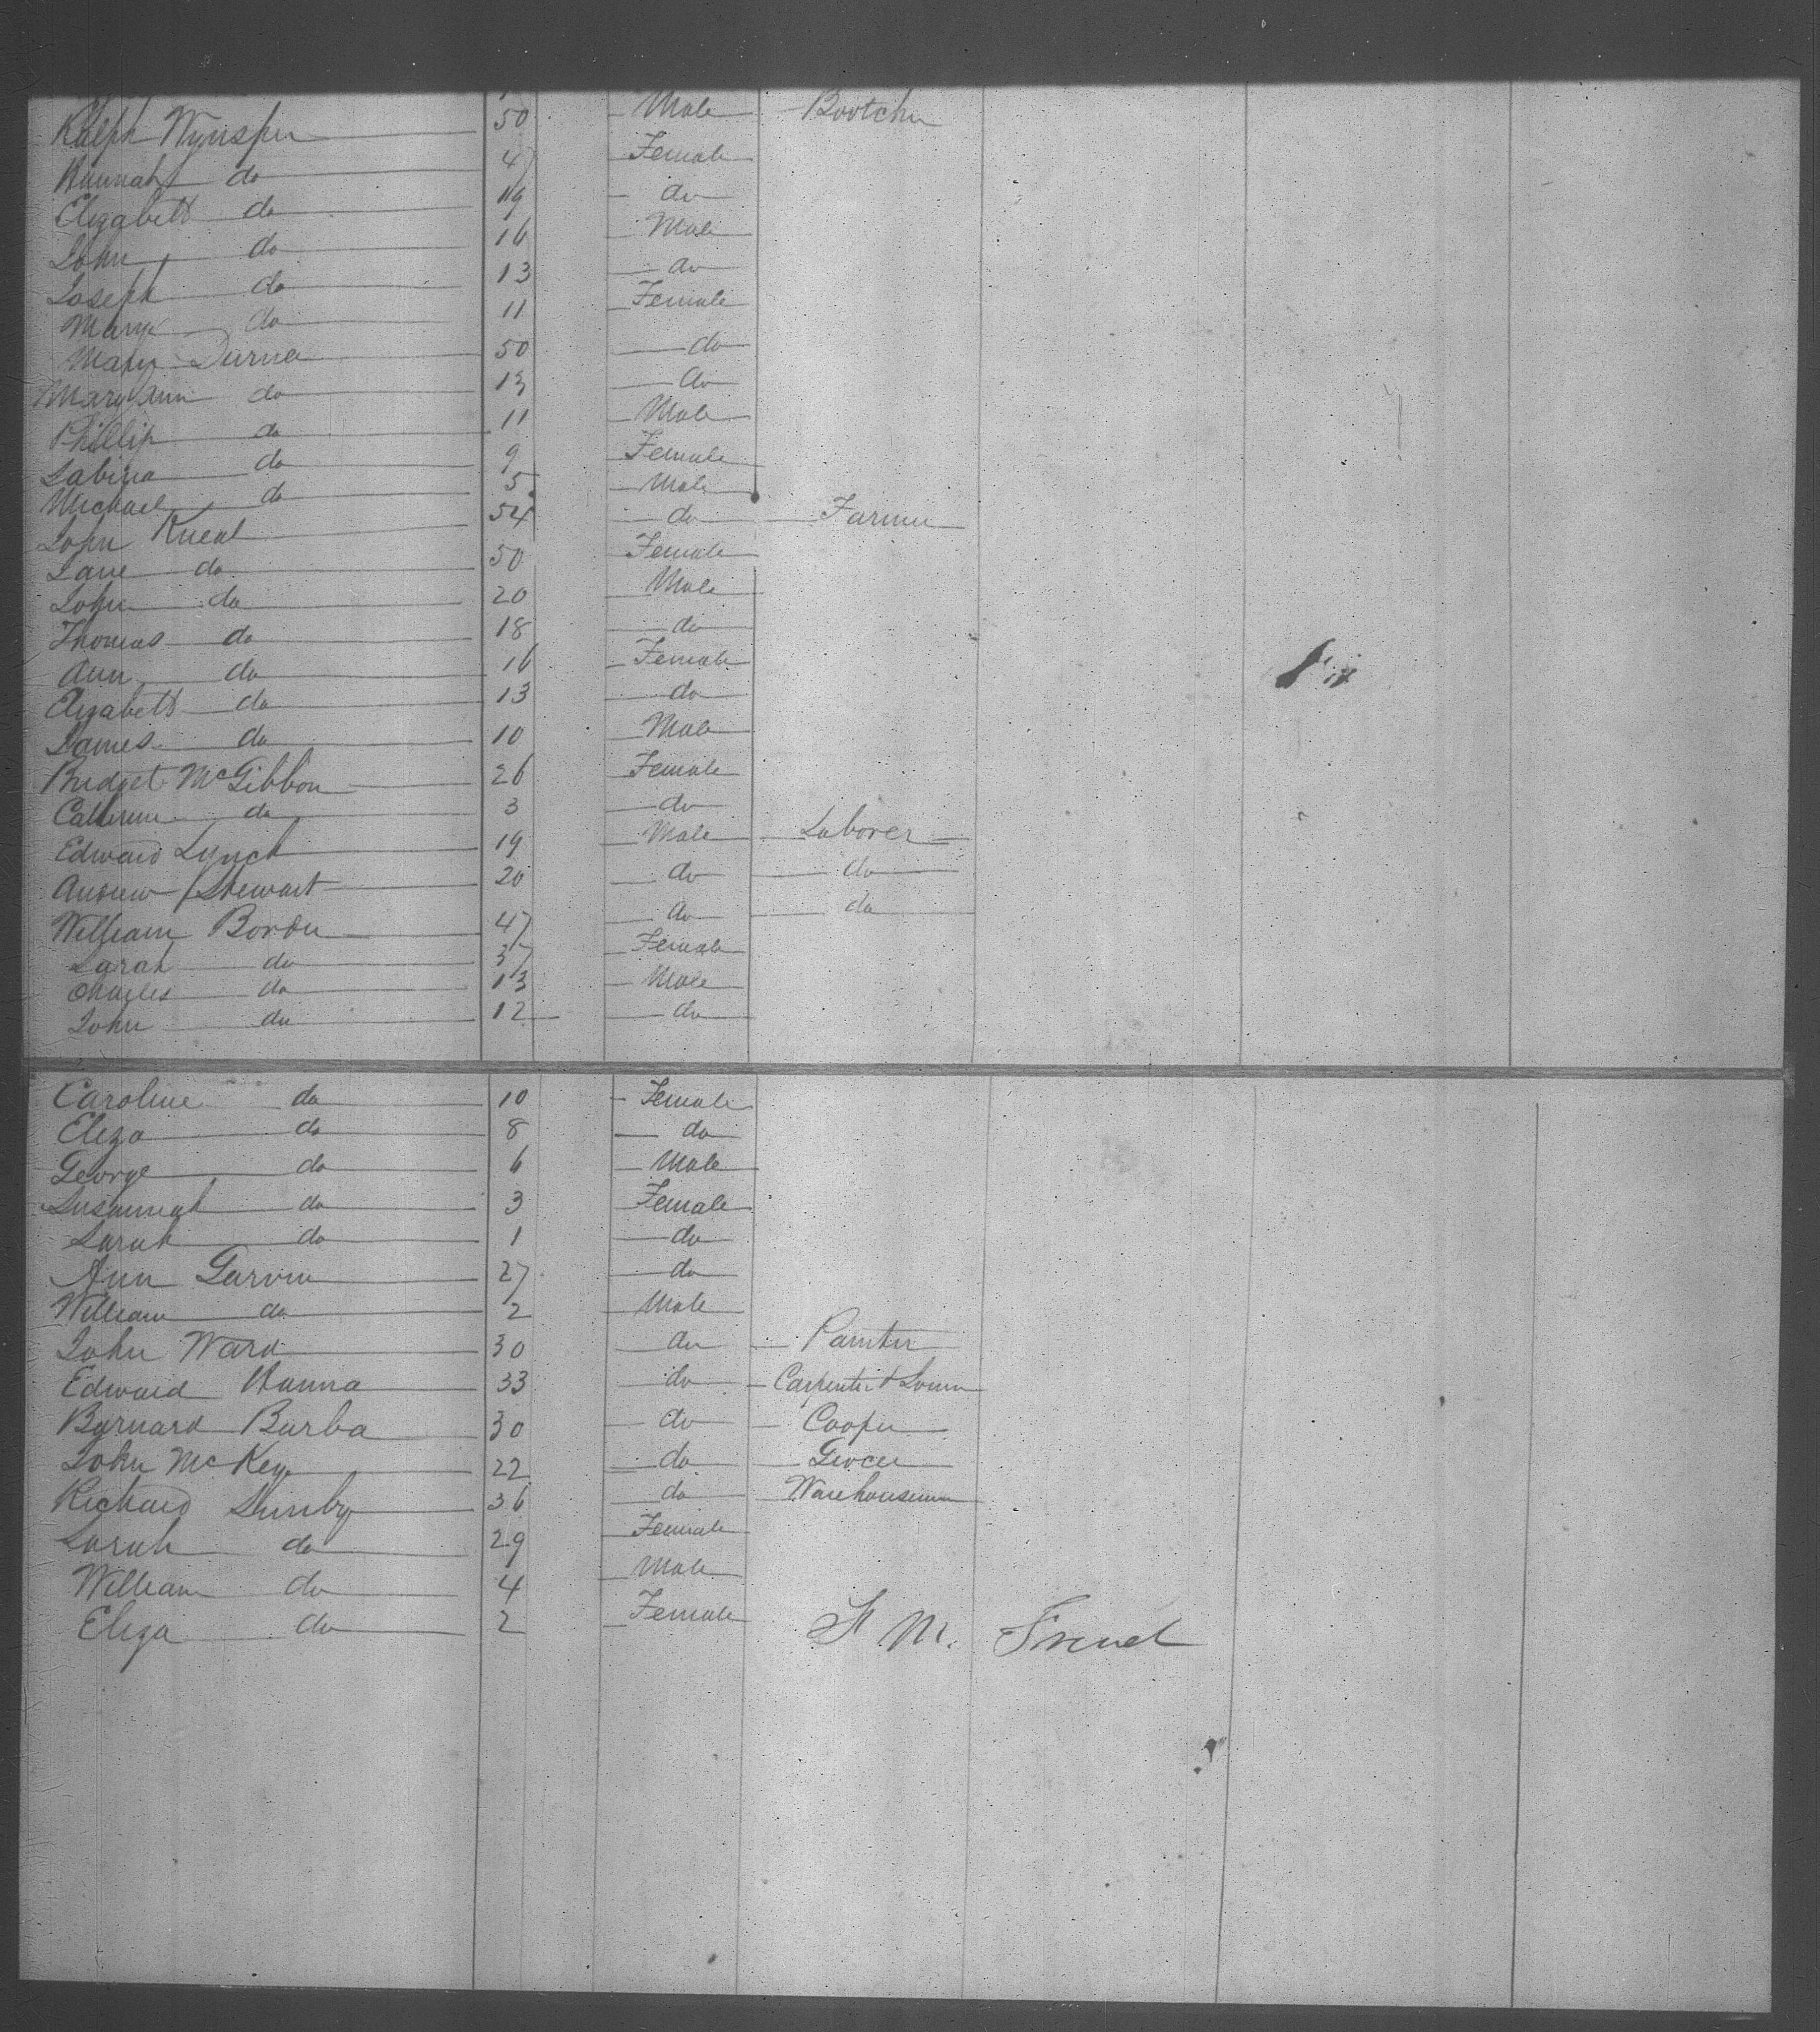 Ralph Wynsper 50 Male Bootcher
Hannah do 47 Female
Elizabeth do 19 do
John do 16 Male
Joseph do 13 do
Mary do 11 Female
Mary Durna 50 do
Mary Ann do 13 do
Phillip do 11 Male
Sabina do 9 Female
Michael do 5 Male
John Kneal 54 do Farmer
Jane do 50 Female
John do 20 Male
Thomas do 18 do
Ann do 16 Female
Elizabeth do 13 do
James do 10 Male
Bridget McGibbon 26 Female
Catherine do 3 do
Edward Lynch 19 Male Laborer
Andrew Stewart 20 do do
William Border 47 do do
Sarah do 37 Female
Charles do 13 Male
John do 12 do
Caroline do 10 Female
Eliza do 8 do
George do 6 Male
Susannah do 3 Female
Sarah do 1 do
Ann Garvin 27 do
William do 2 Male
John Ward 30 do Painter
Edward Hanna 33 do Carpenter &
Barnard Burba 30 do Cooper
John McKey 22 do Grocer
Richard 36 do Warehouseman
Sarah do 29 Female
William do 4 Male
Eliza do 2 Female
M. French